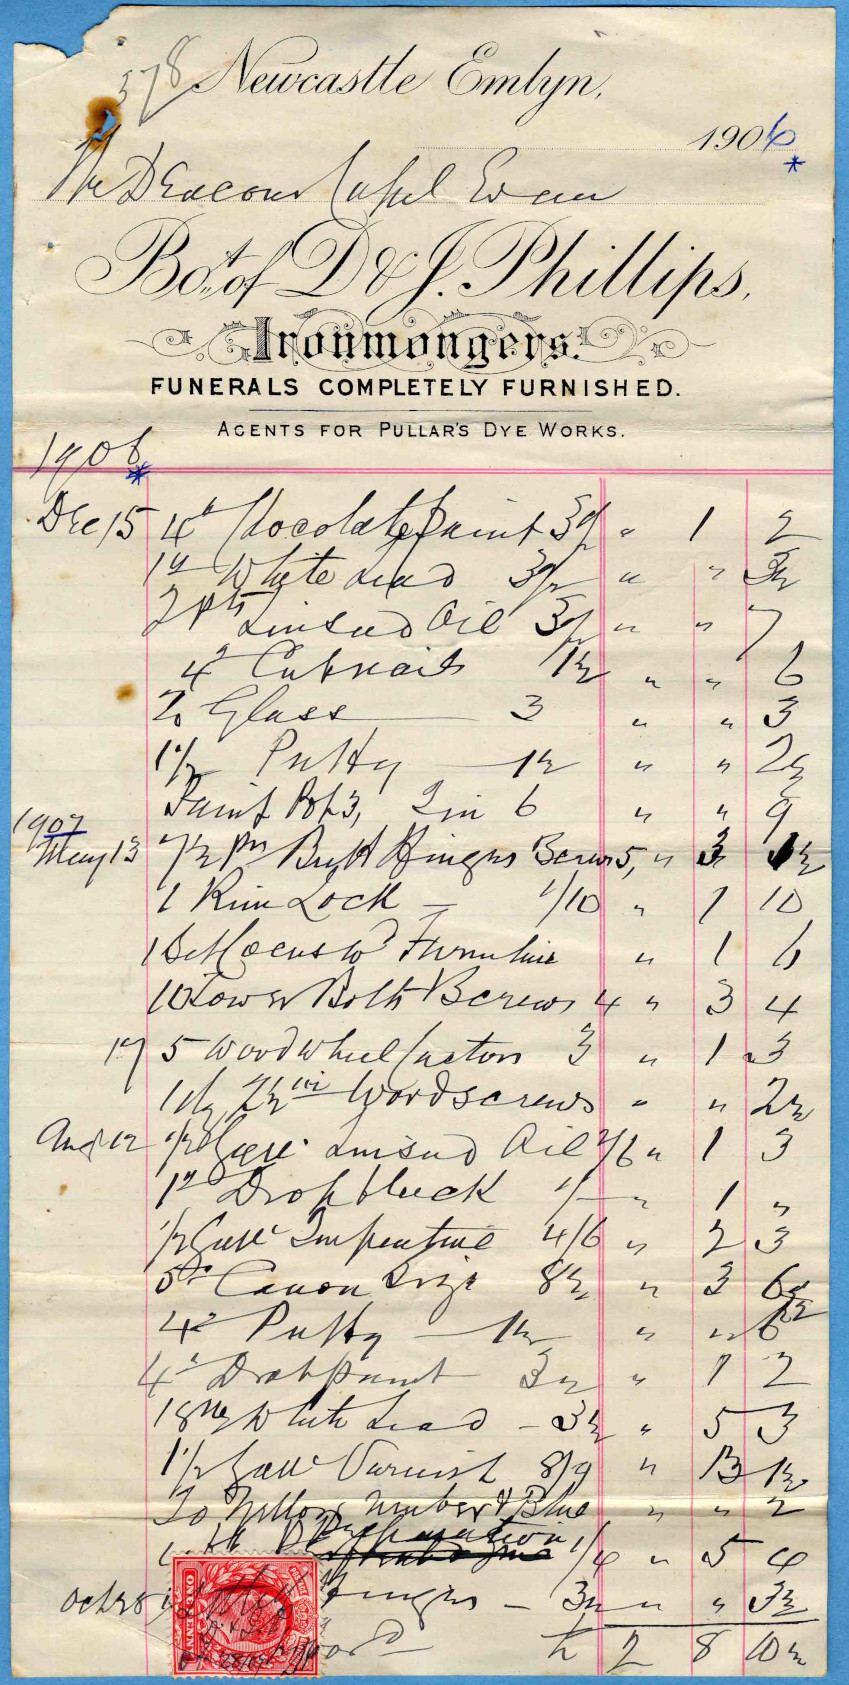 378 Newcastle Emlyn,
1906 *
Deacons Capel Evan
Bo.t of D & J. Phillips,
Ironmongers.
FUNERALS COMPLETELY FURNISHED.
AGENTS FOR PULLAR'S DYE WORKS.
1906 *
Dec 15 4 Chocolate Paint 3½ " 1 2
1 White Lead 3½ " " 3½
2 pts Linseed Oil 3½ " " 7
4 Cutnails 1½ " " 6
To Glass 3 " " 3
1½ Putty 1½ " " 2½
Paint Pot 3, Tin 6 " " 9
1907
May 13 7½ prs Butt Hinges Screws 5, " 3 1½
1 Rim Lock 1/10 " 1 10
1 Set Locust Wd Furniture " 1 6
10 Tower Bolts & Screws 4 " 3 4
17 5 Wood Wheel Castors 3 " 1 3
1 dz 2½ in Woodscrews " " 2½
Aug 12 ½ Gall Linseed Oil 2/6 " 1 3
1 Drop black 1/- " 1 "
½ Gall Turpentine 4/6 " 2 3
5 Canon Size 8½ " 3 6½
4 Putty 1½ " " 6
4 Drab paint 3½ " 1 2
18 White Lead - 3½ " 5 3
1½ Gall Varnish 8/9 " 13 1½
To Yellow Umber & Blue " " 2
Preparation 1/4 " 5 4
Oct 28 Hinges - 3½ " " 3½
£ 2 8 10½
ONE PENNY